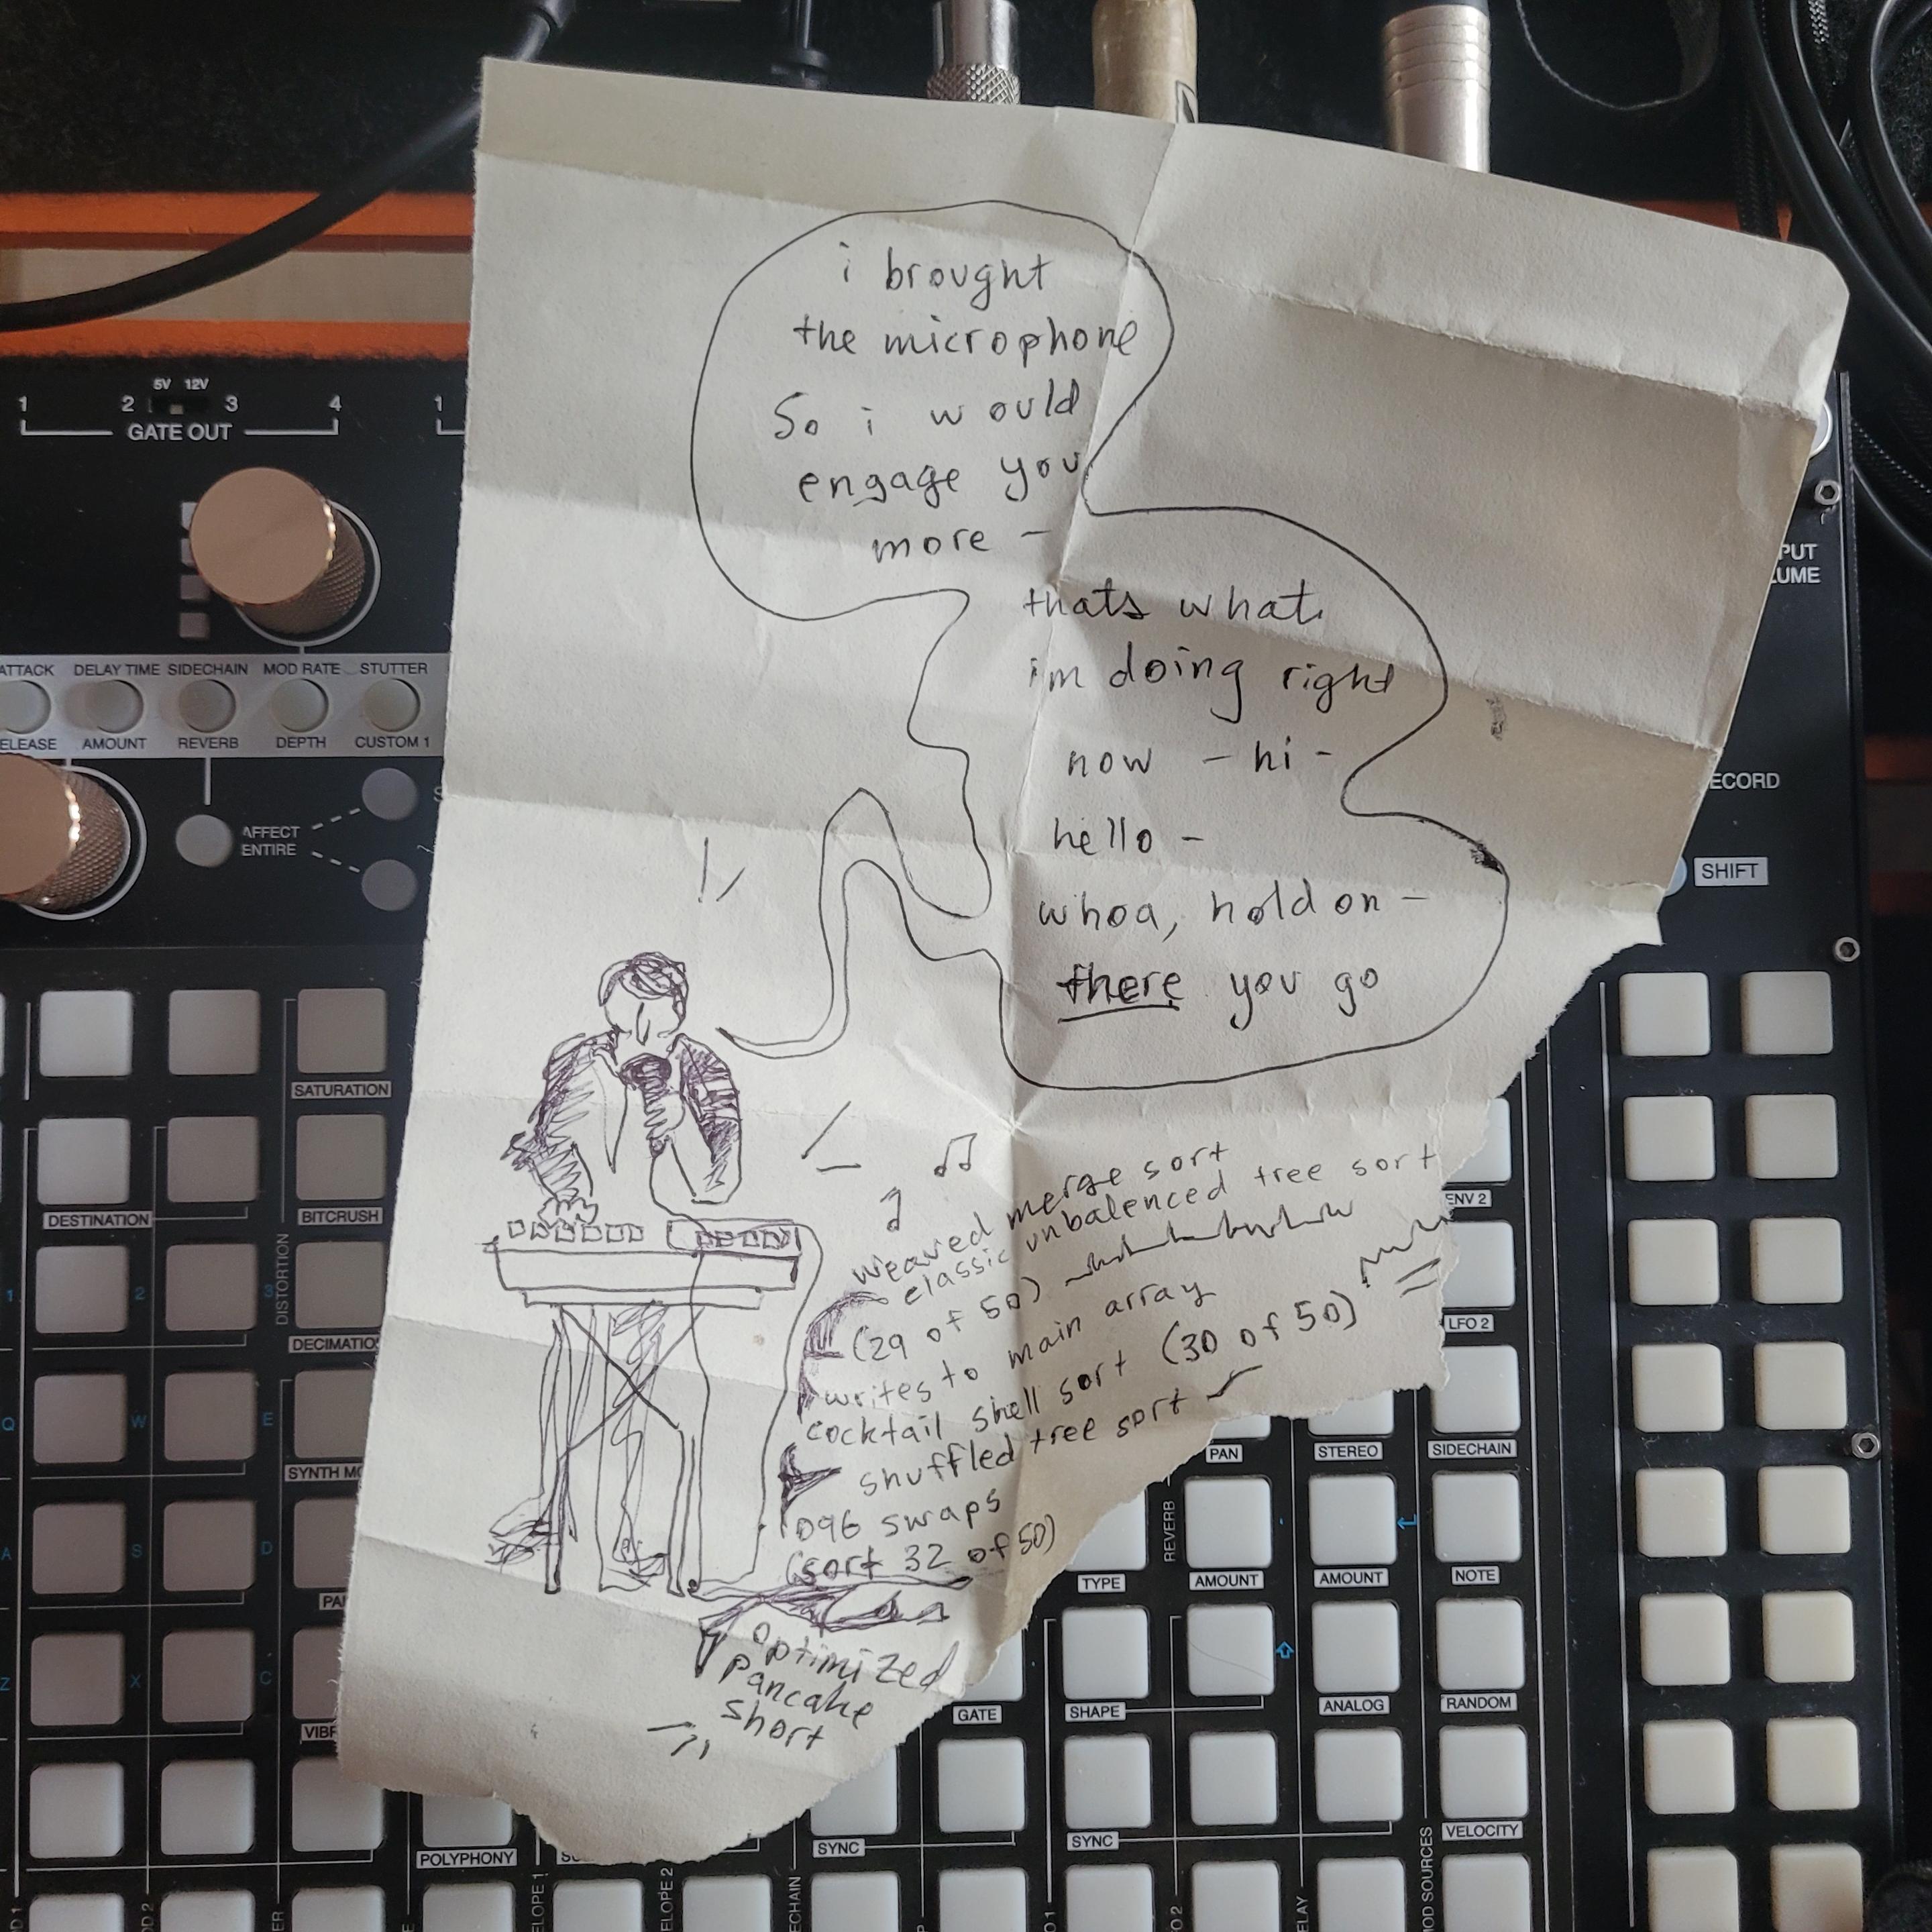 i brought
the microphone
So i would
engage you
more -
thats what
im doing right
now - hi -
hello -
whoa, hold on -
there you go
weaved merge sort
classic unbalenced tree sort
(29 of 50)
writes to main array
cocktail shell sort (30 of 50)
shuffled tree sort
1096 swaps
(sort 32 of 50)
optimized
pancake
short
5V 12V
1 2 3 4 1
GATE OUT
ATTACK DELAY TIME SIDECHAIN MOD RATE STUTTER
ELEASE AMOUNT REVERB DEPTH CUSTOM 1
AFFECT
ENTIRE
S
PUT
UME
ECORD
SHIFT
SATURATION
DESTINATION
BITCRUSH
DISTORTION
1 2 3
DECIMATIO
Q W E
SYNTH MO
A S D
PA
Z X C
VIBR
ENV 2
LFO 2
PAN STEREO SIDECHAIN
REVERB
TYPE AMOUNT AMOUNT NOTE
GATE SHAPE ANALOG RANDOM
SYNC SYNC VELOCITY
POLYPHONY
MOD SOURCES
ELOPE 1
ELOPE 2
ECHAIN
O 1
O 2
ELAY
OD 1
OD 2
ER